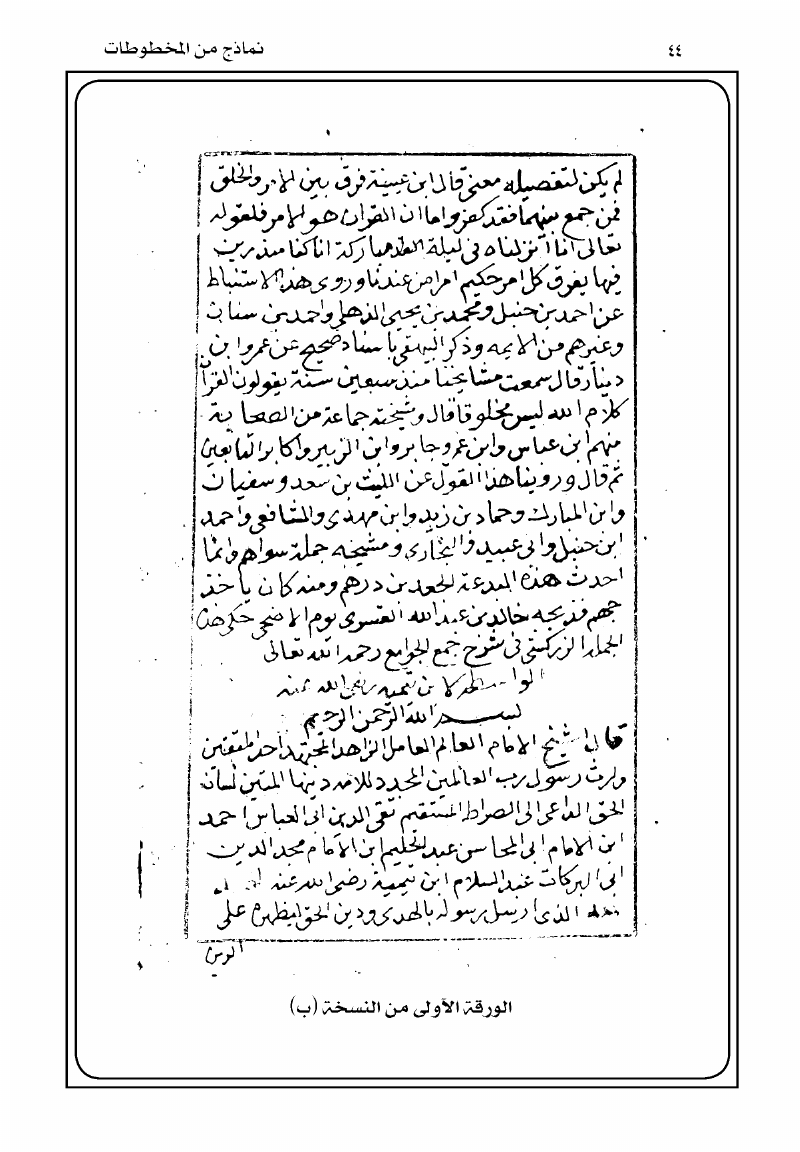 ٤٤
نماذج من المخطوطات
لم يكن لتفصيله معنى قال ابن عيينة فرق بين الامر والخلق
فمن جمع بينهما فقد كفر واما ان القران هو الامر فلقوله
تعالى انا انزلناه في ليلة مباركة انا كنا منذرين
فيها يفرق كل امر حكيم امرا من عندنا وروى هذا الاستنباط
عن احمد بن حنبل ومحمد بن يحيى الذهلي واحمد بن سنان
وغيرهم من الايمه وذكر البيهقي باسناد صحيح عن عمرو ابن
دينار قال سمعت مشايخنا منذ سبعين سنة يقولون القرآن
كلام الله ليس مخلوقا قال ومشيخته جماعة من الصحابة
منهم ابن عباس وابن عمر وجابر وابن الزبير واكابر التابعين
ثم قال وروينا هذا القول عن الليث بن سعد وسفيان
وابن المبارك وحماد بن زيد وابن مهدى والشافعي واحمد
ابن حنبل وابى عبيد والبخارى ومشيخه جملة سواهم وانما
احدث هذه البدعة الجعد بن درهم ومنه كان ياخذ
جهم فذبحه خالد بن عبد الله القسرى يوم الاضحى حكى هذه
الجملة الزركشى فى شرح جمع الجوامع رحمه الله تعالى
لابن تيميه رضى الله عنه
بسم الله الرحمن الرحيم
قال الشيخ الامام العالم العامل الزاهد المجتهد احد المفتين
وارث رسول رب العالمين المجدد للامه دينها المتين لسان
الحق الداعى الى الصراط المستقيم تقي الدين ابى العباس احمد
ابن الامام ابى المحاسن عبد الحليم ابن الامام مجد الدين
ابى البركات عبد السلام ابن تيمية رضى الله عنه
الذى ارسل رسوله بالهدى ودين الحق ليظهره على
الدين
الورقة الأولى من النسخة (ب)